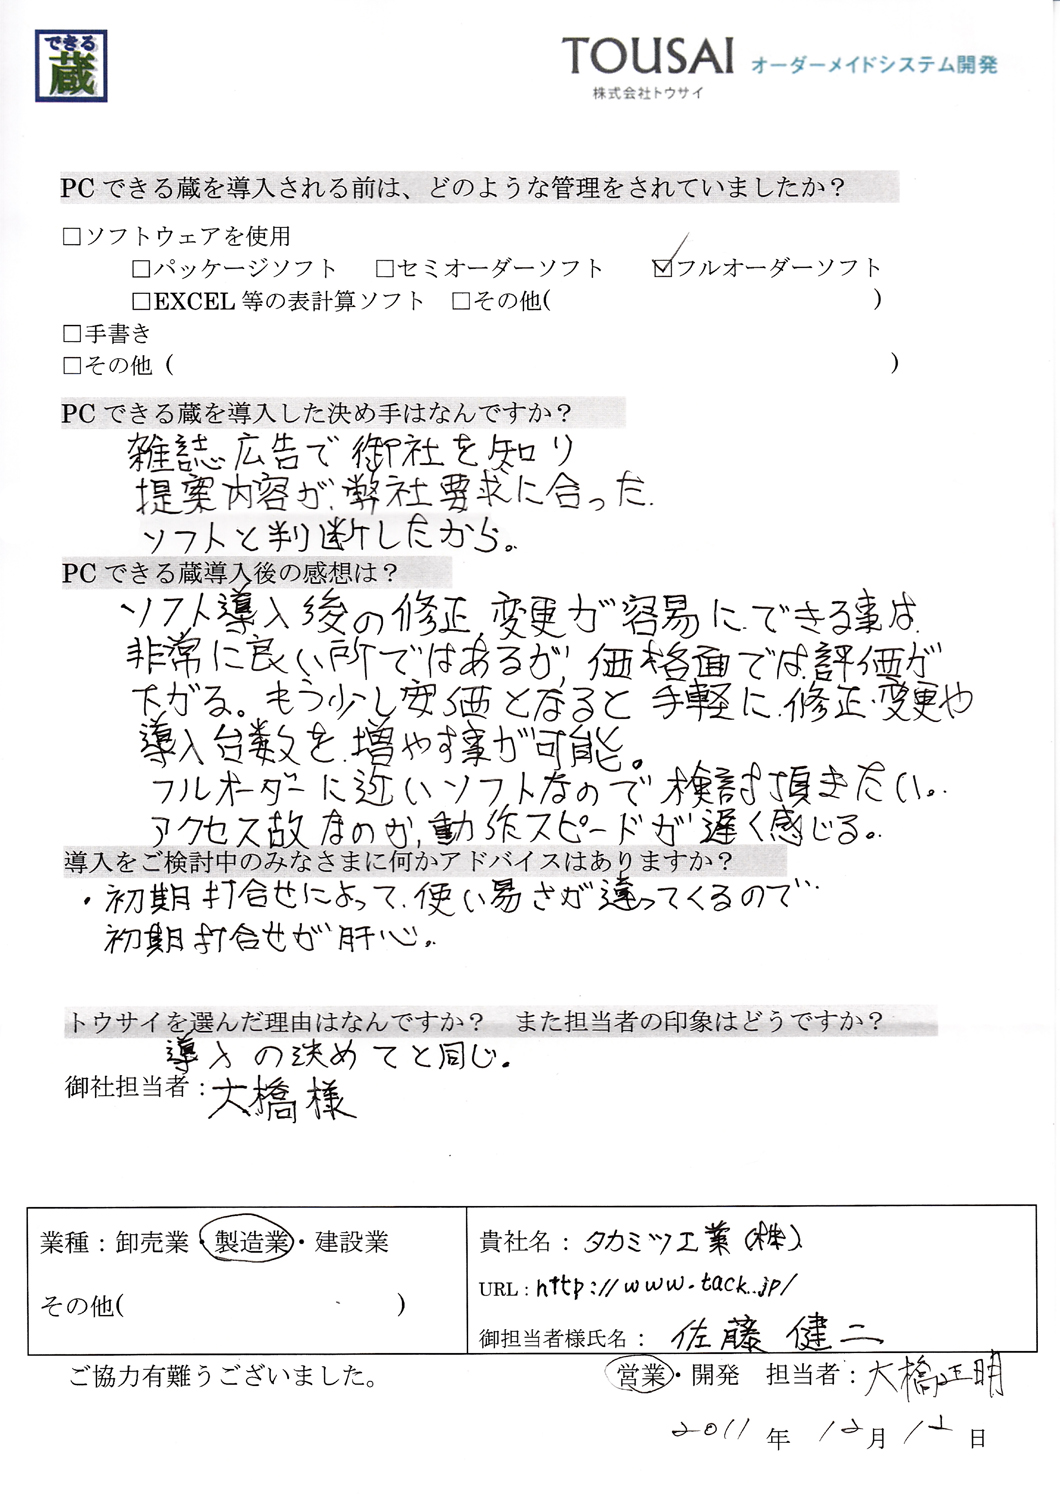 できる
蔵
TOUSAI オーダーメイドシステム開発
株式会社トウサイ
PCできる蔵を導入される前は、どのような管理をされていましたか？
□ソフトウェアを使用
□パッケージソフト □セミオーダーソフト ☑フルオーダーソフト
□EXCEL等の表計算ソフト □その他( )
□手書き
□その他 ( )
PCできる蔵を導入した決め手はなんですか？
雑誌広告で御社を知り
提案内容が、弊社要求に合った
ソフトと判断したから。
PCできる蔵導入後の感想は？
ソフト導入後の修正、変更が容易にできる事は
非常に良い所ではあるが、価格面では評価が
下がる。もう少し安価となると手軽に修正・変更や
導入台数を増やす事が可能。
フルオーダーに近いソフトなので検討頂きたい。
アクセス故なのか、動作スピードが遅く感じる。
導入をご検討中のみなさまに何かアドバイスはありますか？
・初期打合せによって、使い易さが違ってくるので
初期打合せが肝心。
トウサイを選んだ理由はなんですか？ また担当者の印象はどうですか？
導入の決めてと同じ。
御社担当者：大橋様
業種：卸売業・製造業・建設業
その他( )
貴社名：タカミツ工業(株)
URL：http://www.tack.jp/
御担当者様氏名：佐藤健二
ご協力有難うございました。
営業・開発 担当者：大橋正明
2011年12月12日